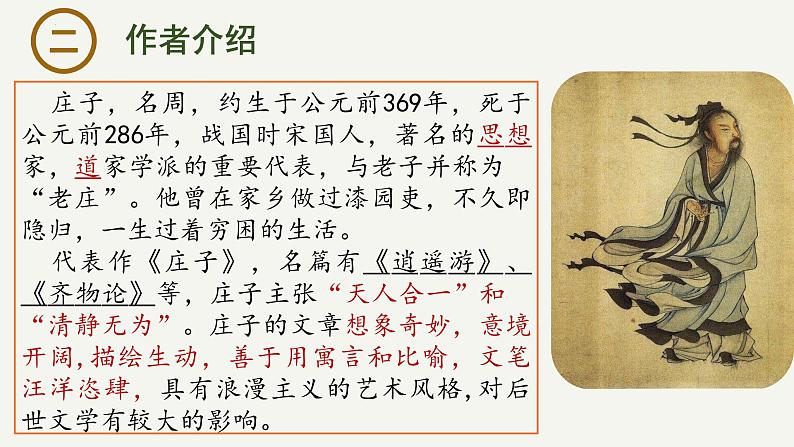 二
作者介绍
庄子，名周，约生于公元前369年，死于
公元前286年，战国时宋国人，著名的思想
家，道家学派的重要代表，与老子并称为
“老庄”。他曾在家乡做过漆园吏，不久即
隐归，一生过着穷困的生活。
代表作《庄子》，名篇有《逍遥游》、
《齐物论》等，庄子主张“天人合一”和
“清静无为”。庄子的文章想象奇妙，意境
开阔,描绘生动，善于用寓言和比喻，文笔
汪洋恣肆，具有浪漫主义的艺术风格,对后
世文学有较大的影响。